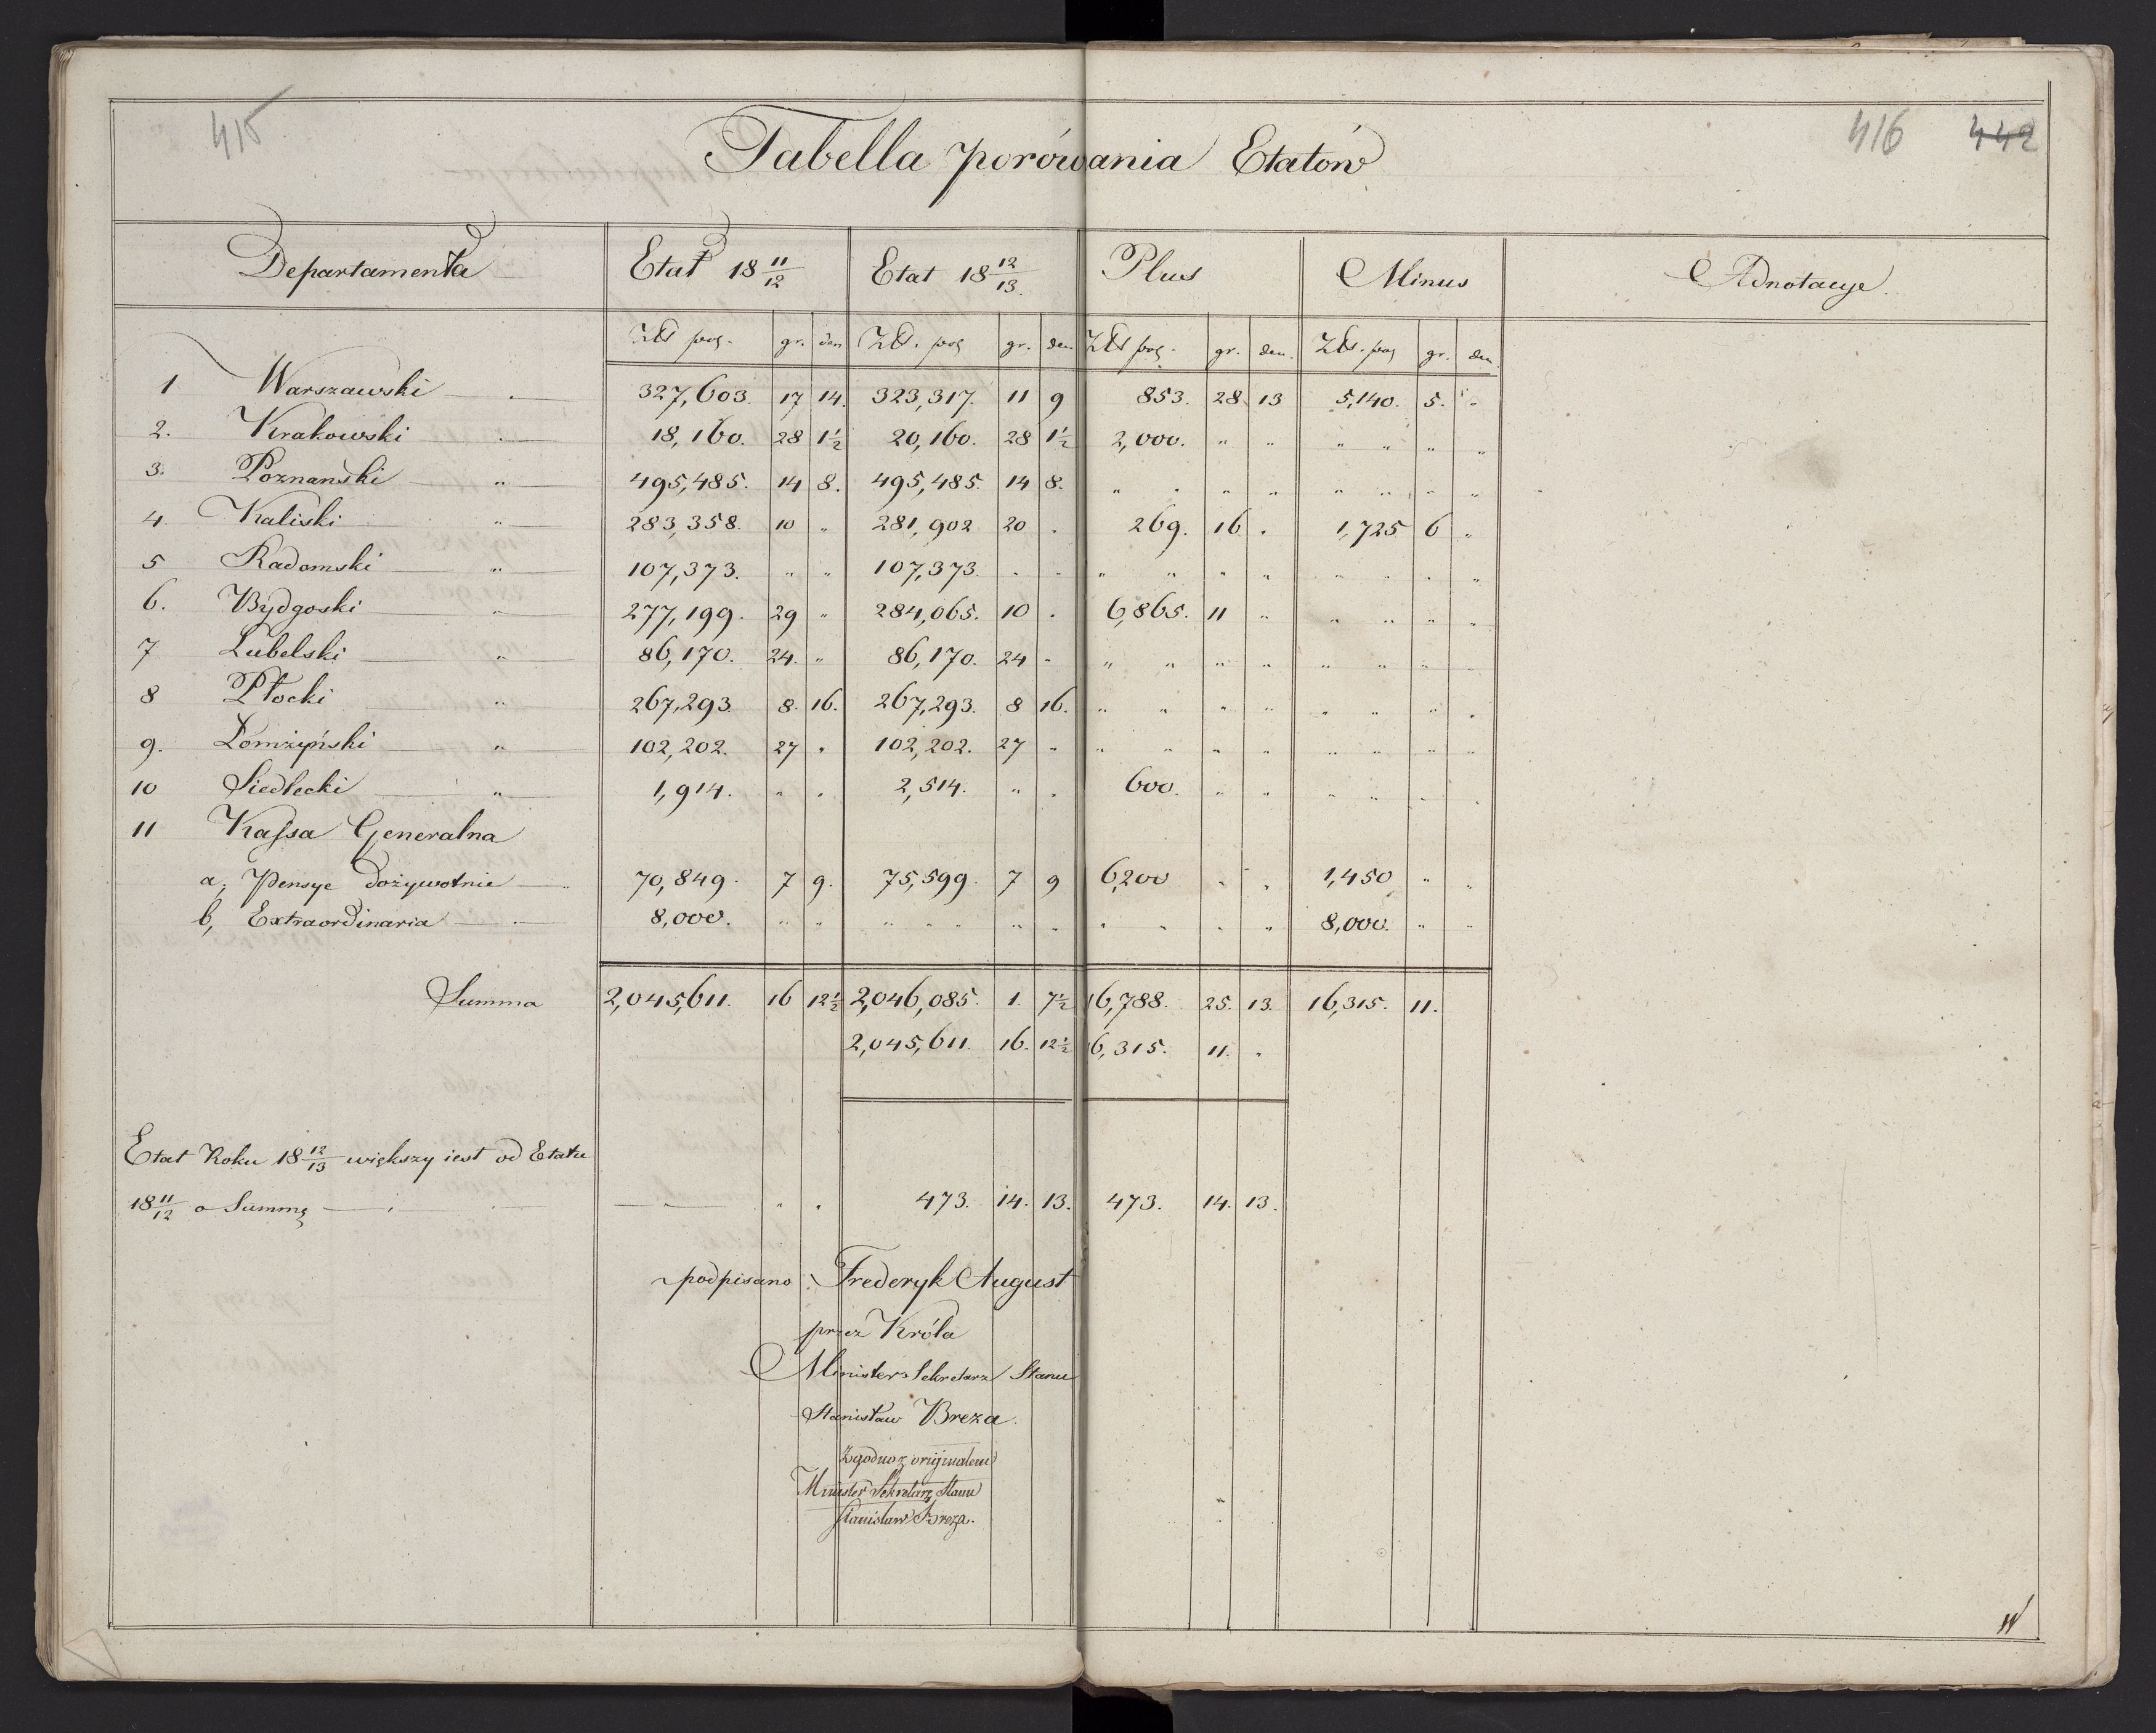 415
416 442
Tabella porówania Etatów
Departamenta Etat 18 11/12 Etat 18 12/13. Plus Minus Adnotacye.
gr. den gr. den. gr. den. gr. den.
1 Warszawski 327,603. 17 14. 323,317. 11 9 853. 28 13 5,140. 5. "
2. Krakowski 18,160. 28 1½ 20,160. 28 1½ 2,000. " " " " " "
3. Poznanski " 495,485. 14 8. 495,485. 14 8. " " " " " " " "
4. Kaliski " 283,358. 10 " 281,902 20 . 269. 16 . 1,725 6 "
5 Radomski " 107,373. " " 107,373. " " " " " " " " " "
6. Bydgoski " 277,199. 29 " 284,065. 10 . 6,865. 11 " " " " "
7 Lubelski " 86,170. 24. " 86,170. 24 " " " " " " " " "
8 Płocki " 267,293. 8. 16. 267,293. 8 16. " " " " " " " "
9. Łomżyński " 102,202. 27 " 102,202. 27 " " " " " " " " "
10 Siedlecki " 1,914. " " 2,514. " " 600. " " " " " "
11 Kassa Generalna
a, Pensye dożywotnie " 70,849. 7 9. 75,599. 7 9 6,200 " " 1,450 " "
b, Extraordinaria 8,000. " " " " " " " " " " " 8,000. " "
Summa 2,045,611. 16 12½ 2,046,085. 1. 7½ 16,788. 25. 13. 16,315. 11.
2,045,611. 16. 12½ 16,315. 11. "
Etat Roku 18 12/13 większy iest od Etatu
18 11/12 o Summę " " " 473. 14. 13. 473. 14. 13.
podpisano : Frederyk August
przez Króla
Minister Sekretarz Stanu
Stanisław Breza.
Zgodno z oryjinałem
Minister Sekretarz Stanu
Stanisław Breza.